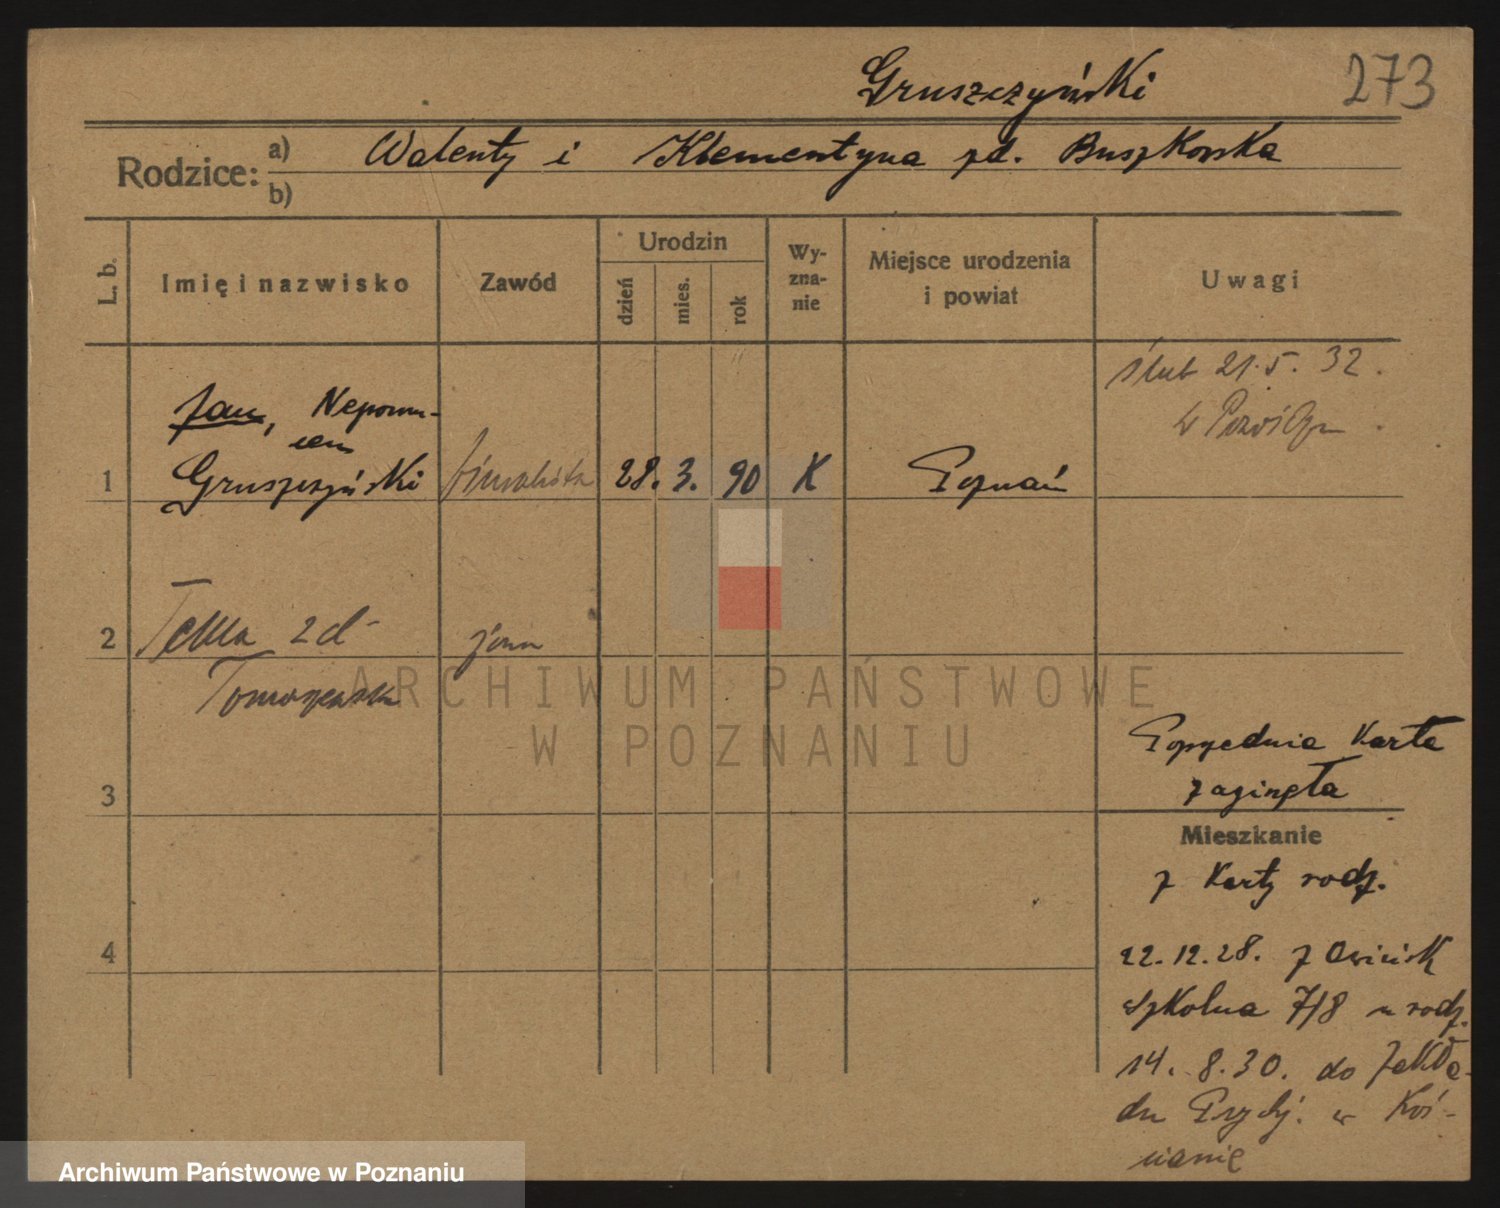 Gruszczyński 273
Rodzice: a) Walenty i Klementyna zd. Buszkowska
b)
L. b. Imię i nazwisko Zawód Urodzin dzień mies. rok Wyznanie Miejsce urodzenia i powiat Uwagi
ślub 21.5.32.
w
Jan, Nepomu-
cen
1 Gruszczyński 28. 3. 90 K Poznań
2 Tekla zd żona
Tomaszewska
ARCHIWUM PAŃSTWOWE
W POZNANIU
Poprzednia Karta
3 zaginęła
Mieszkanie
z Karty rodz.
4 22.12.28. z Owińsk
Szkolna 7/8 u rodz.
14. 8.30. do Zakła-
du Psychj. w Koś-
cianie
Archiwum Państwowe w Poznaniu